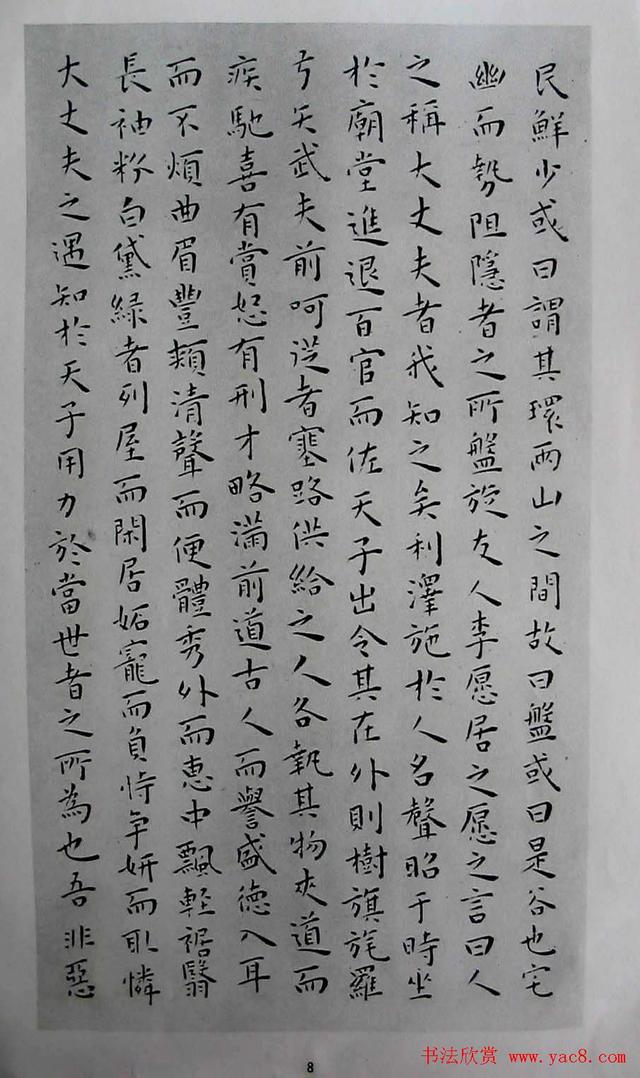 民鮮少或曰謂其環兩山之間故曰盤或曰是谷也宅
幽而勢阻隱者之所盤旋友人李愿居之愿之言曰人
之稱大丈夫者我知之矣利澤施於人名聲昭于時坐
於廟堂進退百官而佐天子出令其在外則樹旗旄羅
弓矢武夫前呵從者塞路供給之人各執其物夾道而
疾馳喜有賞怒有刑才略滿前道古人而譽盛德入耳
而不煩曲眉豐頰清聲而便體秀外而惠中飄輕裾翳
長袖粉白黛綠者列屋而閑居妬寵而負恃爭妍而取憐
大丈夫之遇知於天子用力於當世者之所為也吾非惡
8
书法欣赏 www.yac8.com